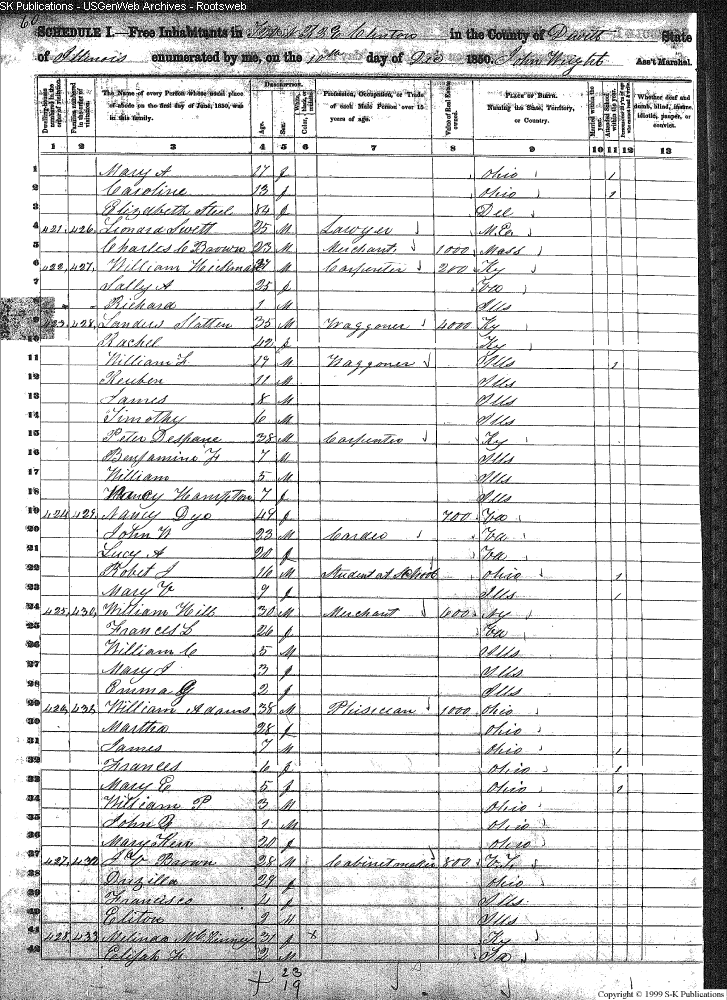 SK Publications - USGenWeb Archives - Rootsweb
60
SCHEDULE I.—Free Inhabitants in Clinton in the County of Dewitt State
of Illinois enumerated by me, on the 10th day of Dec 1850. John Wright Ass't Marshal.
Dwelling-houses numbered in the order of visitation. Families numbered in the order of visitation. The Name of every Person whose usual place of abode on the first day of June, 1850, was in this family. Description. Age. Sex. Color, Profession, Occupation, or Trade of each Male Person over 15 years of age. Value of Real Estate owned. Place of Birth. Naming the State, Territory, or Country. Married within the year. Attended School within the year. Whether deaf and dumb, blind, insane, idiotic, pauper, or convict.
1 2 3 4 5 6 7 8 9 10 11 12 13
1 Mary A 17 f Ohio 1
2 Caroline 13 f Ohio 1
3 Elizabeth Steel 84 f Del
4 421 426 Lionard Swett 25 M Lawyer M.E.
5 Charles C Brown 23 M Merchant 1000 Mass
6 422 427 William Hickman M Carpenter 200 Ky
7 Sally A 25 f Va
8 Richard 1 M Ills
9 423 428 Landers Slatten 35 M Waggoner 4000 Ky
10 Rachel 42 f Ky
11 William L 19 M Waggoner Ills 1
12 Reuben 11 M Ills
13 James 8 M Ills
14 Timothy 6 M Ills
15 Peter Despane 38 M Carpenter Ky
16 Benjamine F 7 M Ills
17 William 5 M Ills
18 Nancy Hampton 7 f Ills
19 424 429 Nancy Dyo 49 f 700 Va
20 John W 23 M Va
21 Lucy A 20 f Va
22 Robet J 16 M Student at School Ohio 1
23 Mary V 9 f Ills 1
24 425 430 William Hill 30 M Merchant 600 Ny
25 Frances L 26 f Va
26 William C 5 M Ills
27 Mary J 3 f Ills
28 Emma G 2 f Ills
29 426 431 William Adams 38 M Phisician 1000 Ohio
30 Martha 28 f Ohio
31 James 7 M Ohio 1
32 Frances 6 f Ohio 1
33 Mary E 5 f Ohio 1
34 William P 3 M Ohio
35 John Q 1 M Ohio
36 Mary Kerr 20 f Ohio
37 427 432 J V Brown 28 M Cabinet maker 800
38 Druzilla 29 f Ohio
39 Francisco 4 f Ills
40 Cliton 2 M Ills
41 428 433 Milinda McKinney 31 f x Ky
42 Elijah F 2 M
23
19
Copyright © 1999 S-K Publications